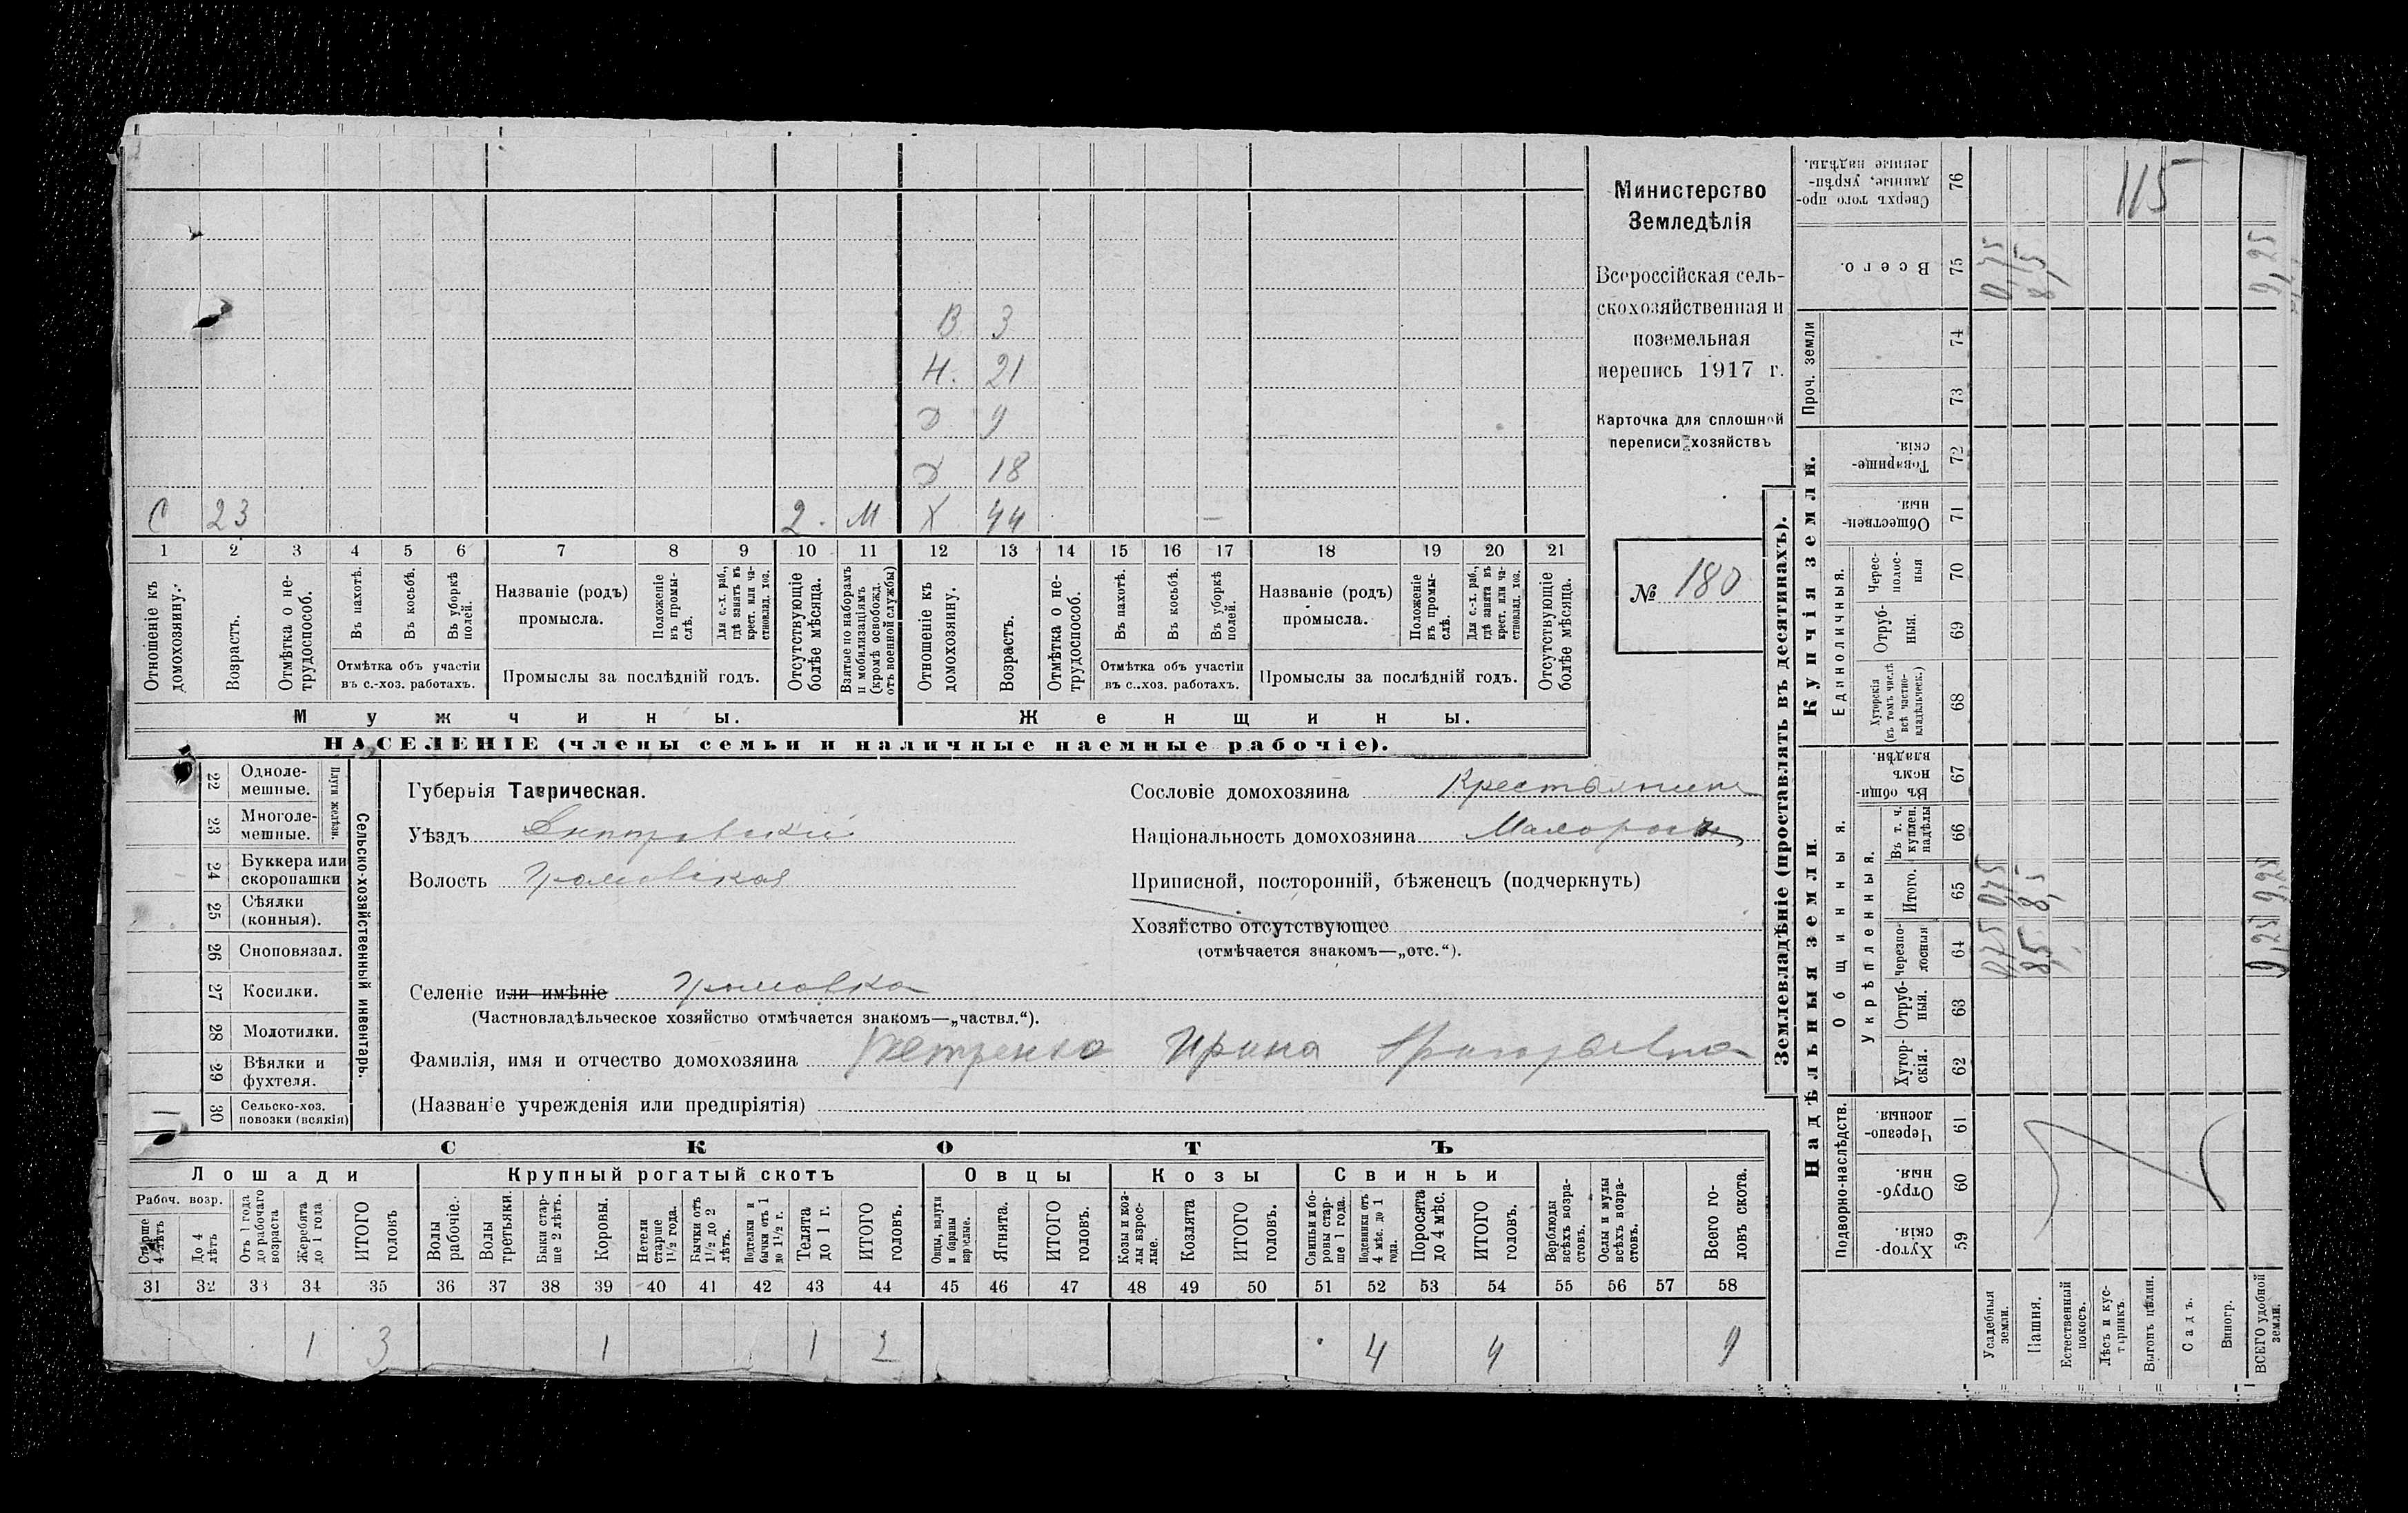 Министерство
Земледѣлія
Всероссійская сель-
скохозяйственная и
поземельная
перепись 1917 г.
Карточка для сплошной
переписи хозяйствъ
№ 180
В 3
Н. 21
Д 9
Д 18
С 23 2. М Х 44 —
1 2 3 4 5 6 7 8 9 10 11 12 13 14 15 16 17 18 19 20 21
Отношеніе къ домохозяину.
Возрастъ.
Отмѣтка о не-трудоспособ.
Въ пахотѣ.
Въ косьбѣ.
Въ уборкѣ полей.
Отмѣтка объ участіи въ с.-хоз. работахъ.
Названіе (родъ) промысла.
Положеніе въ промы-слѣ.
Для с.-х. раб., гдѣ занятъ въ крест. или ча-стновлад. хоз.
Промыслы за послѣдній годъ.
Отсутствующіе болѣе мѣсяца.
Взятые по наборамъ и мобилизаціямъ (кромѣ освобожд. отъ военной службы)
Отношеніе къ домохозяину.
Возрастъ.
Отмѣтка о не-трудоспособ.
Въ пахотѣ.
Въ косьбѣ.
Въ уборкѣ полей.
Отмѣтка объ участіи въ с.-хоз. работахъ.
Названіе (родъ) промысла.
Положеніе въ промы-слѣ.
Для с.-х. раб., гдѣ занята въ крест. или ча-стновлад. хоз.
Промыслы за послѣдній годъ.
Отсутствующіе болѣе мѣсяца.
Мужчины. Женщины.
НАСЕЛЕНІЕ (члены семьи и наличные наемные рабочіе).
Сельско-хозяйственный инвентарь.
Плуги желѣзн.
22 Одноле-мешные.
23 Многоле-мешные.
24 Буккера или скоропашки
25 Сѣялки (конныя).
26 Сноповязал.
27 Косилки.
28 Молотилки.
29 Вѣялки и фухтеля.
30 Сельско-хоз. повозки (всякія) 1
Губернія Таврическая.
Уѣздъ Днѣпровскій
Волость Громовская
Сословіе домохозяина Крестьянинъ
Національность домохозяина Малоросъ
Приписной, посторонній, бѣженецъ (подчеркнуть)
Хозяйство отсутствующее
(отмѣчается знакомъ—„отс.“).
Селеніе или имѣніе Громовка
(Частновладѣльческое хозяйство отмѣчается знакомъ—„частвл.“).
Фамилія, имя и отчество домохозяина Петренко Ирина Григорьевна
(Названіе учрежденія или предпріятія)
СКОТЪ
Лошади Крупный рогатый скотъ Овцы Козы Свиньи
Рабоч. возр.
Старше 4 лѣтъ
До 4 лѣтъ
Отъ 1 года до рабочаго возраста
Жеребята до 1 года
ИТОГО головъ
Волы рабочіе.
Волы третьяки.
Быки стар-ше 2 лѣтъ.
Коровы.
Нетели старше 1½ года.
Бычки отъ 1½ до 2 лѣтъ.
Подтелки и бычки отъ 1 до 1½ г.
Телята до 1 г.
ИТОГО головъ.
Овцы, валухи и бараны взрослые.
Ягнята.
ИТОГО головъ.
Козы и коз-лы взрос-лые.
Козлята
ИТОГО головъ.
Свиньи и бо-ровы стар-ше 1 года.
Подсвинки отъ 4 мѣс. до 1 года.
Поросята до 4 мѣс.
ИТОГО головъ.
Верблюды всѣхъ возра-стовъ.
Ослы и мулы всѣхъ возра-стовъ.
Всего го-ловъ скота.
31 32 33 34 35 36 37 38 39 40 41 42 43 44 45 46 47 48 49 50 51 52 53 54 55 56 57 58
1 3 1 1 2 4 4 9
Землевладѣніе (проставлять въ десятинахъ).
Надѣльныя земли.
Купчія земли.
Проч. земли
Подворно-наслѣдств.
Общинныя.
Укрѣпленныя.
Единоличныя.
Хутор-скія. 59
Отруб-ныя. 60
Черезпо-лосныя. 61
Хутор-скія. 62
Отруб-ныя. 63
Черезпо-лосныя 64
Итого. 65
Въ т. ч. куплен. надѣлы 66
Въ общи-номъ владѣн. 67
Хуторскія (въ томъ числѣ всѣ частно-владѣльческ.) 68
Отруб-ныя. 69
Черес-полос-ныя 70
Обществен-ныя. 71
Товарище-скія. 72
73
74
Всего. 75
Сверхъ того про-данные, укрѣп-ленные надѣлы. 76
Усадебныя земли. 0,75 0,75 0,75
Пашня. 8,5 8,5 8,5
Естественный покосъ.
Лѣсъ и кус-тарникъ.
Выгонъ цѣлин.
Садъ.
Виногр.
ВСЕГО удобной земли. 9,25 9,25 9,25
115